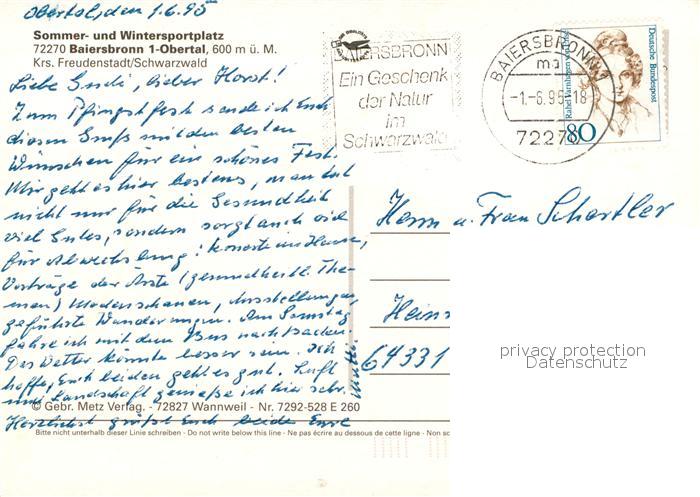 Obertal, den 1.6.95
Sommer- und Wintersportplatz
72270 Baiersbronn 1-Obertal, 600 m ü. M.
Krs. Freudenstadt/Schwarzwald
Liebe Gudi, lieber Horst!
Zum Pfingstfest sende ich Euch
diesen Gruß mit den besten
Wünschen für ein schönes Fest.
Mir geht es hier bestens, man tut
nicht nur für die Gesundheit
viel Gutes, sondern sorgt auch viel
für Abwechslung: Konzerte im Hause,
Vorträge der Ärzte (gesundheitl. The-
men) Modenschauen, Ausstellungen,
geführte Wanderungen. Am Samstag
fahre ich mit dem Bus nach Baden.
Das Wetter könnte besser sein. Ich
hoffe, Euch beiden geht es gut. Luft
und Landschaft genieße ich hier sehr.
Herzlichst grüßt Euch beide Eure
© Gebr. Metz Verlag. - 72827 Wannweil - Nr. 7292-528 E 260
Bitte nicht unterhalb dieser Linie schreiben - Do not write below this line - Ne pas écrire au dessous de cette ligne - Non sc
BAIERSBRONN
Ein Geschenk
der Natur
im
Schwarzwald
BAIERSBRONN 1
ma
-1.-6.95-18
72270
Deutsche Bundespost
Rahel Varnhagen von Ense
80
Herrn u. Frau Schertler
Heins
64331
privacy protection
Datenschutz